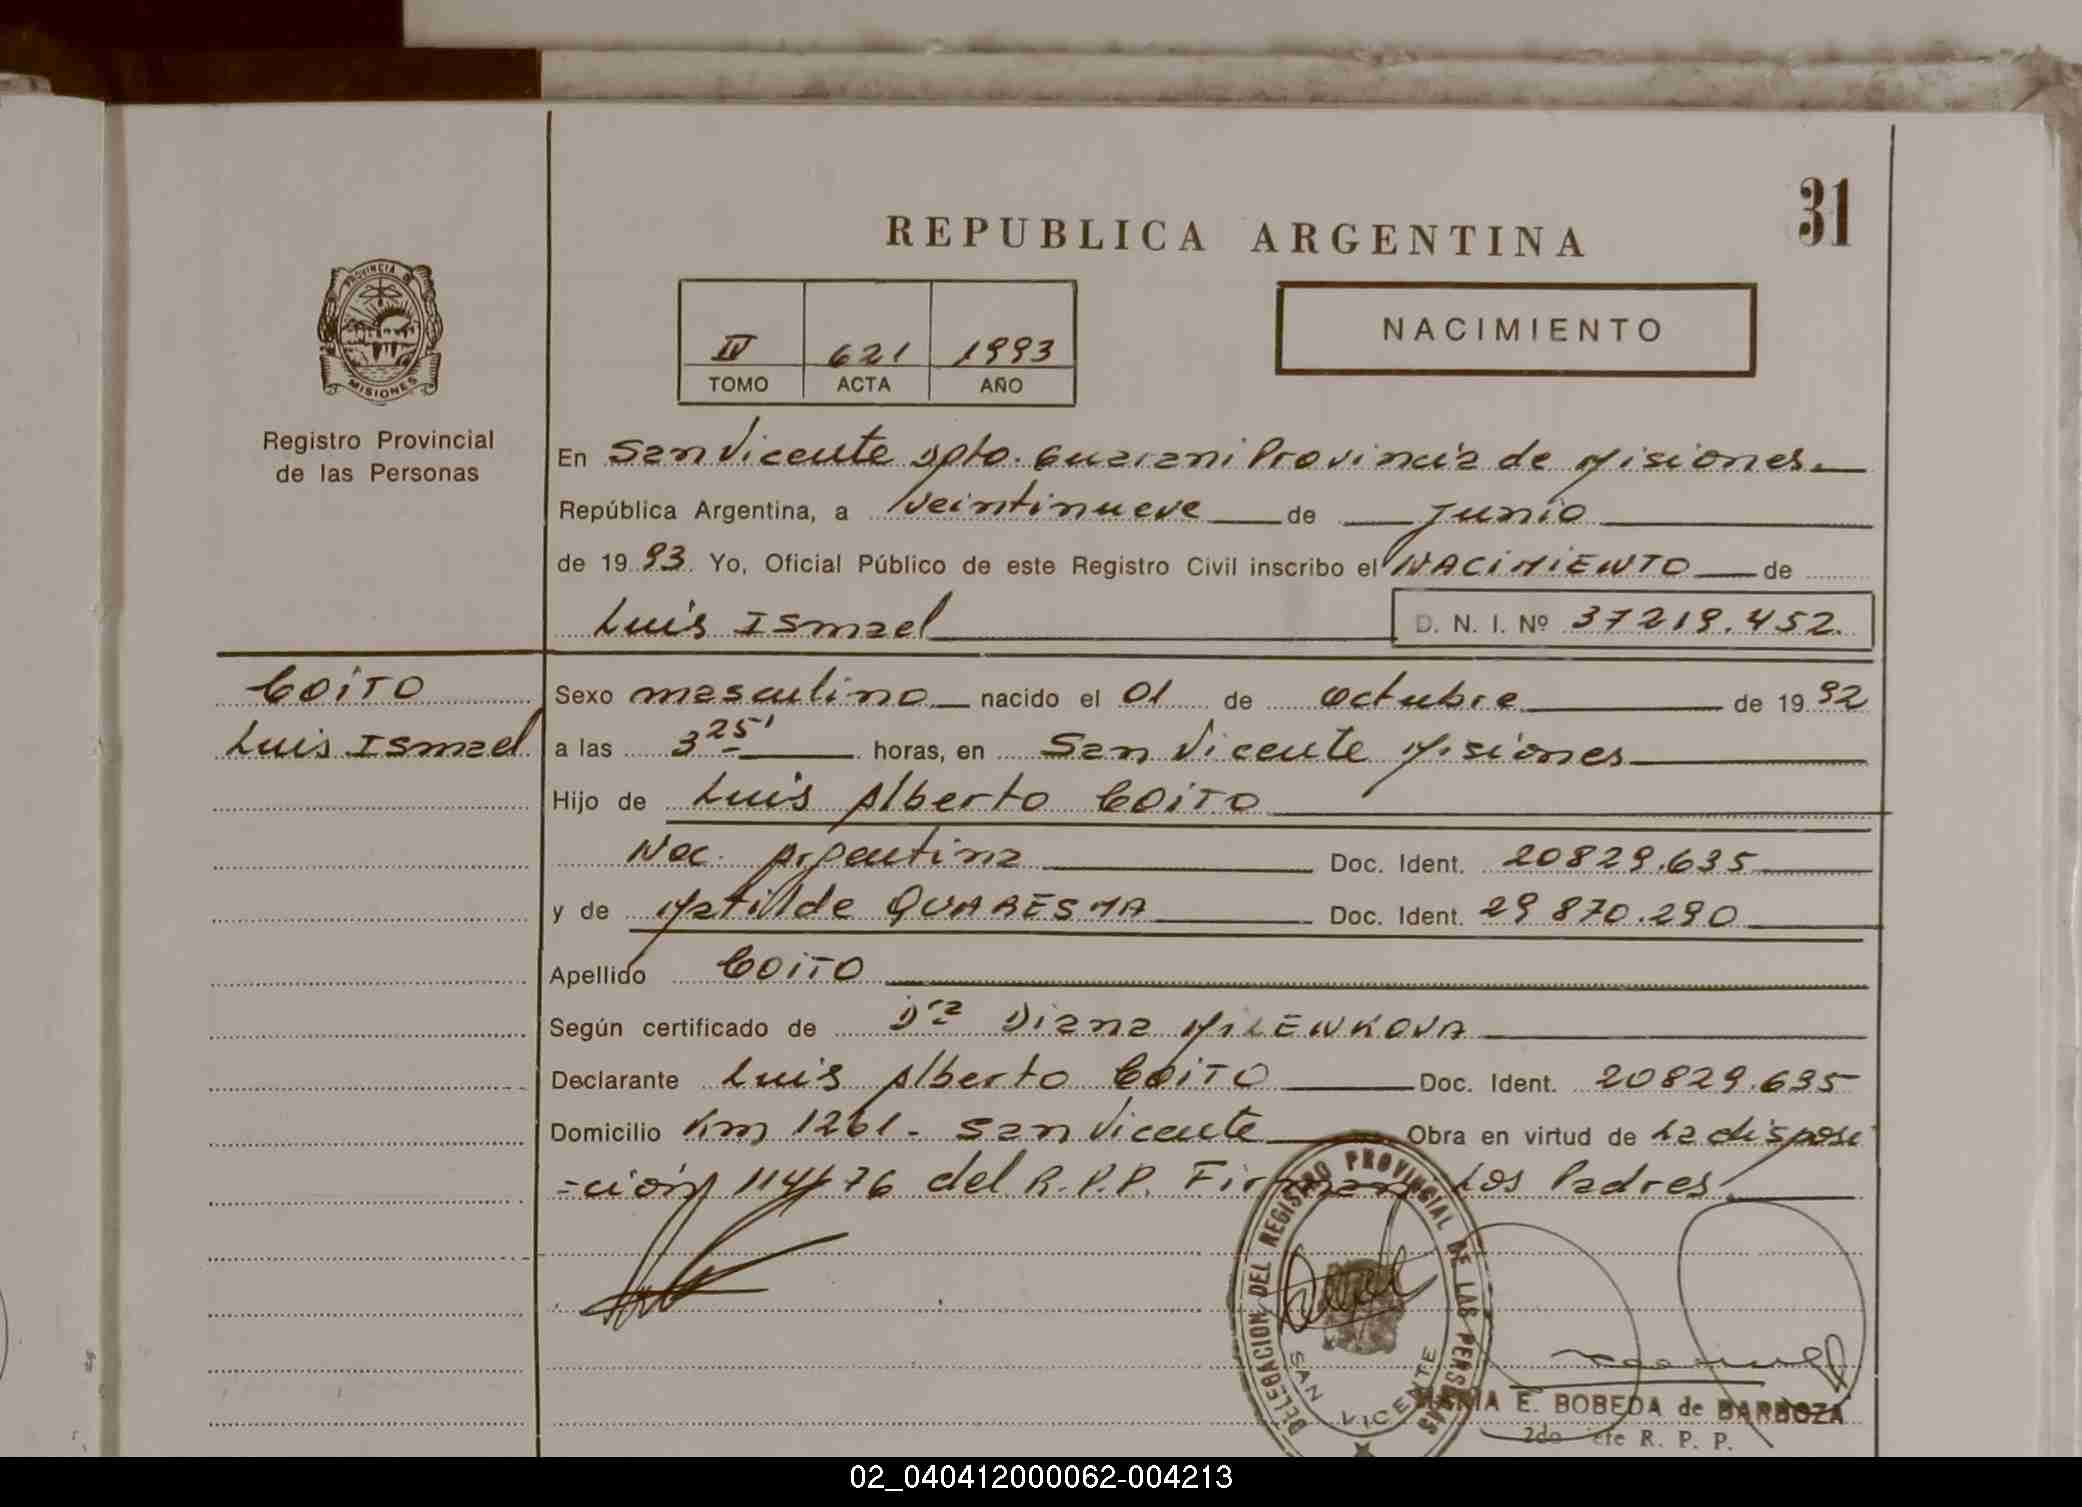 31
REPUBLICA ARGENTINA
PROVINCIA DE
MISIONES
Registro Provincial
de las Personas
IV 621 1993
TOMO ACTA AÑO
NACIMIENTO
En San Vicente Dpto. Guarani Provincia de Misiones
República Argentina, a veintinueve de Junio
de 1993 Yo, Oficial Público de este Registro Civil inscribo el NACIMIENTO de
Luis Ismael D. N. I. Nº 37219.452.
COITO
Luis Ismael
Sexo masculino nacido el 01 de octubre de 1992
a las 3 25' horas, en San Vicente Misiones
Hijo de Luis Alberto COITO
Nac. Argentina Doc. Ident. 20829.635
y de Matilde QUARESMA Doc. Ident. 29870.290
Apellido COITO
Según certificado de Dra Diana MILENKOVA
Declarante Luis Alberto COITO Doc. Ident. 20829.635
Domicilio Km 1261 - San Vicente Obra en virtud de La disposi
=ción 114/76 del R.P.P. Firman Los Padres.
DELEGACION DEL REGISTRO PROVINCIAL DE LAS PERSONAS
SAN VICENTE
MARIA E. BOBEDA de BARBOZA
2do Jefe R. P. P.
02_040412000062-004213